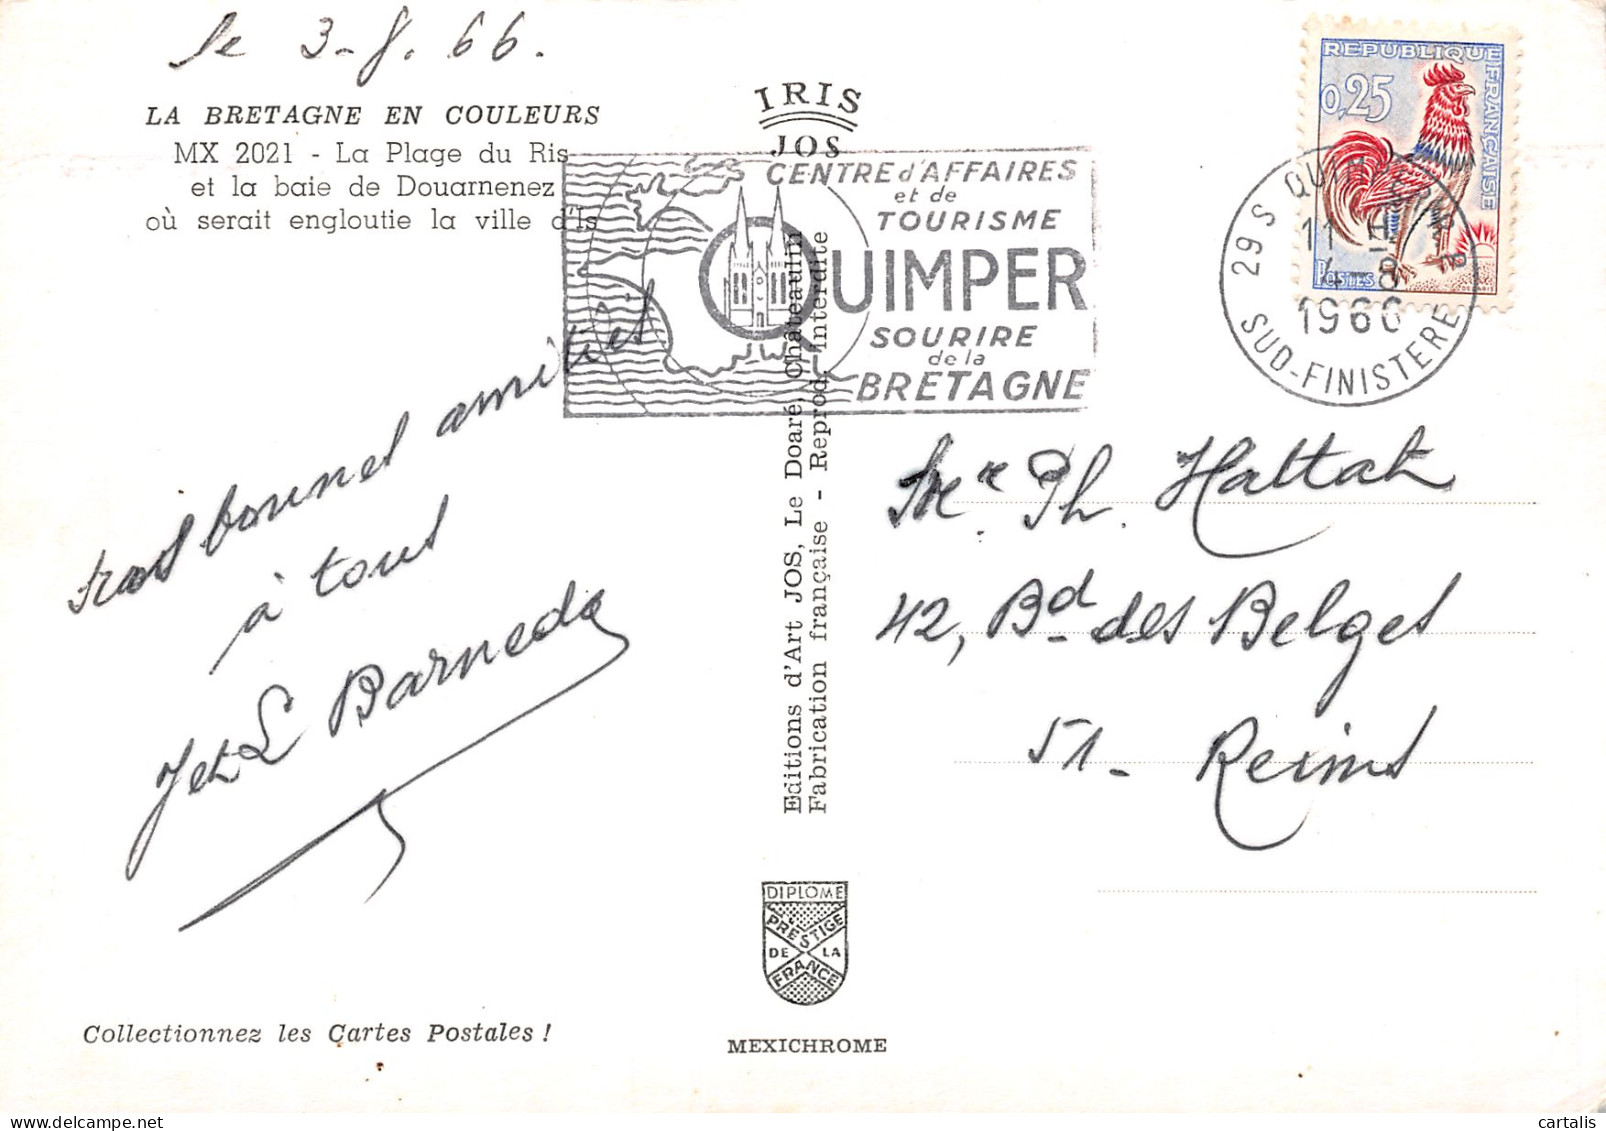 le 3-8.66.
LA BRETAGNE EN COULEURS
MX 2021 - La Plage du Ris
et la baie de Douarnenez
où serait engloutie la ville d'Is
IRIS
JOS
CENTRE d'AFFAIRES
et de
TOURISME
QUIMPER
SOURIRE
de la
BRETAGNE
REPUBLIQUE FRANÇAISE
0,25
POSTES
29 S QUIMPER
11 H
4-8
1966
SUD-FINISTERE
bonnes amitiés
à tous
J et L Barneda
Editions d'Art JOS, Le Doaré, Châteaulin
Fabrication française - Reprod. interdite
Ph. Hattat
42, Bd des Belges
51 - Reims
DIPLOME
PRESTIGE
DE LA
FRANCE
Collectionnez les Cartes Postales !
MEXICHROME
cartalis